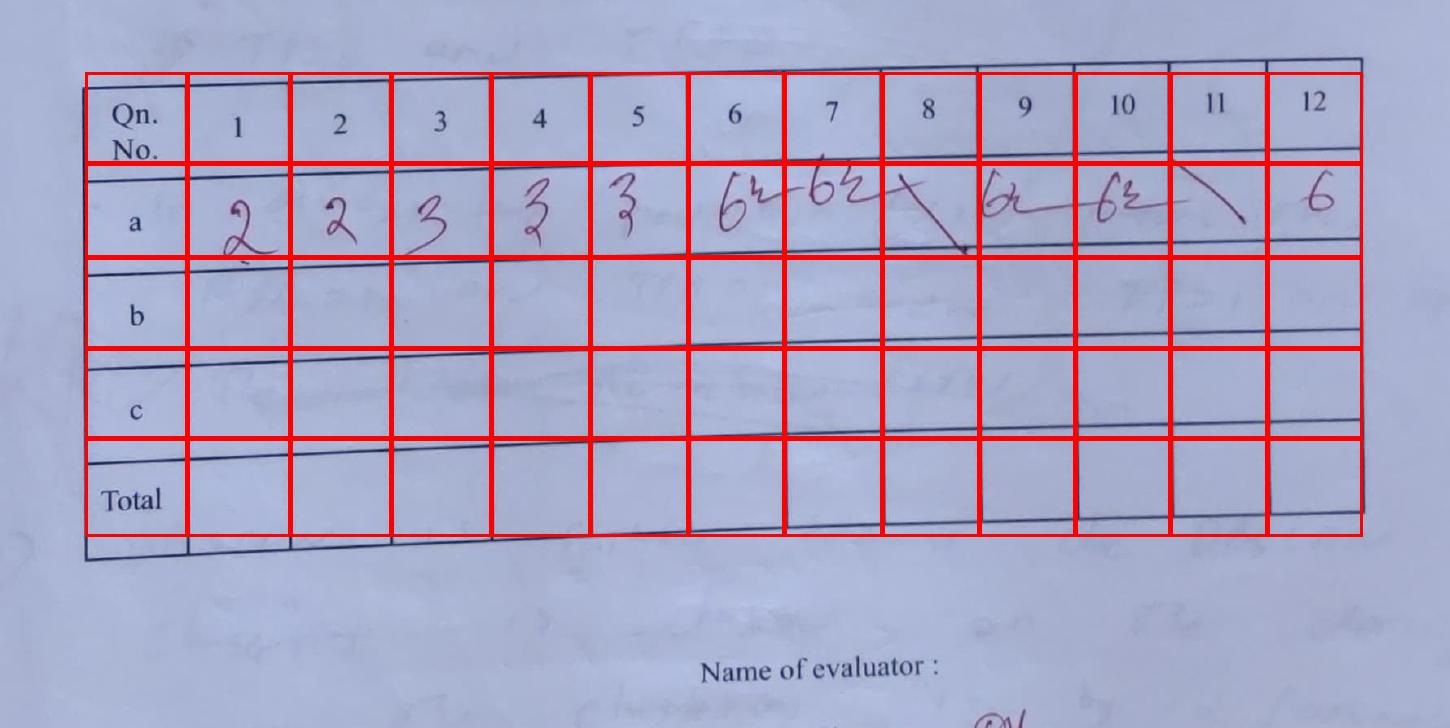 Qn. No. 1 2 3 4 5 6 7 8 9 10 11 12
a 2 2 3 3 3 6½ 6½ \ 6½ 6½ \ 6
b
c
Total
Name of evaluator :